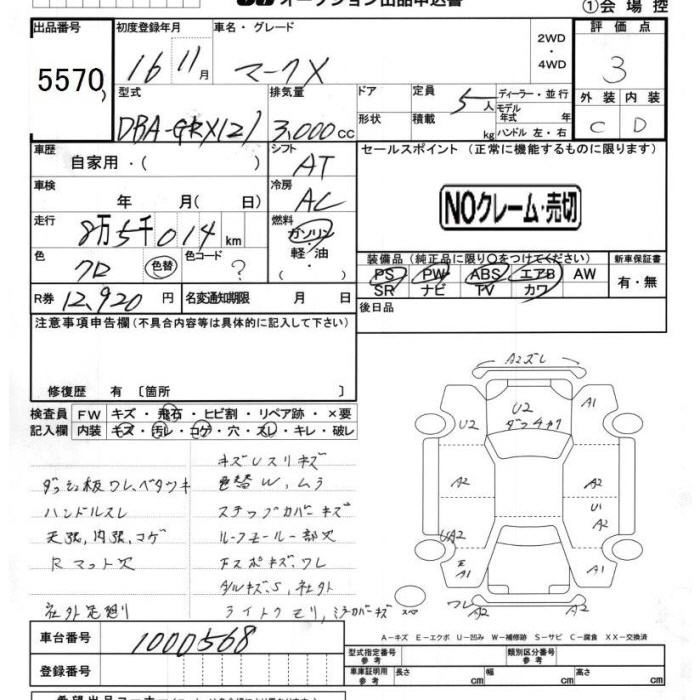 オークション出品申込書
①会場控
出品番号
5570
初度登録年月
16 11月
車名・グレード
マークX
2WD
・
4WD
評価点
3
型式
DBA-GRX121
排気量
3,000cc
ドア
定員
5人
ディーラー・並行
形状
積載
kg
モデル年式 年
ハンドル 左・右
外装
内装
C
D
車歴
自家用・( )
シフト
AT
セールスポイント (正常に機能するものに限ります)
車検
年 月( 日)
冷房
AC
NOクレーム・売切
走行
8万5千014km
燃料
ガソリン
・
軽・油
・( )
色
クロ
色替
色コード
?
装備品(純正品に限り○をつけてください)
PS PW ABS エアB AW
SR ナビ TV カワ
新車保証書
有・無
R券
12,920円
名変通知期限 月 日
後日品
注意事項申告欄(不具合内容等は具体的に記入して下さい)
修復歴 有〔箇所 〕
検査員記入欄
FW キズ・飛石・ヒビ割・リペア跡・×要
内装 キズ・汚レ・コゲ・穴・スレ・キレ・破レ
ダッシュ板ワレ、ベタツキ
ハンドルスレ
天張,内張,コゲ
Rマット欠
キズUスリキズ
色替W,ムラ
ステップカバーキズ
ルーフモール一部欠
Fスポキズ,ワレ
ライトクモリ,ミラーカバーキズ
A2ズレ
U2
A1
U2
A2
A2
U1
A2
UA2
A1
A1
ワレ
A2
A2
スペ
車台番号
1000568
A－キズ E－エクボ U－凹み W－補修跡 S－サビ C－腐食 XX－交換済
登録番号
型式指定番号
参考
類別区分番号
参考
車庫証明用
参考
長さ cm
幅 cm
高さ cm